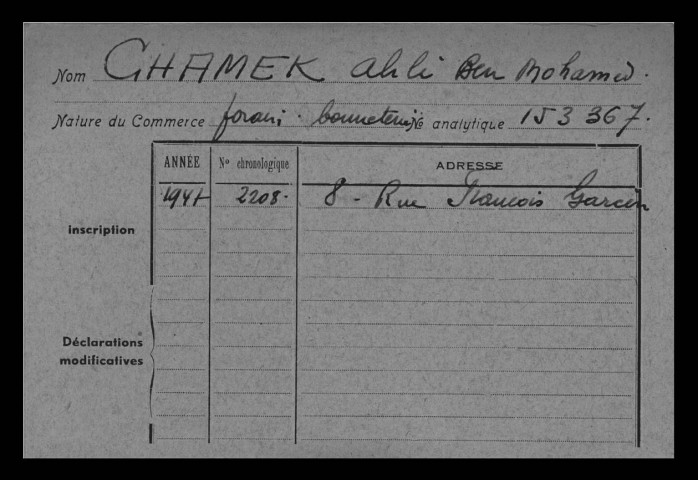 Nom GHAMEK Ahli Ben Mohamed.
Nature du Commerce forain. bonneterie No analytique 153 367.
ANNÉE No chronologique ADRESSE
1941 2208. 8 - Rue François Garcin
Inscription
Déclarations
modificatives